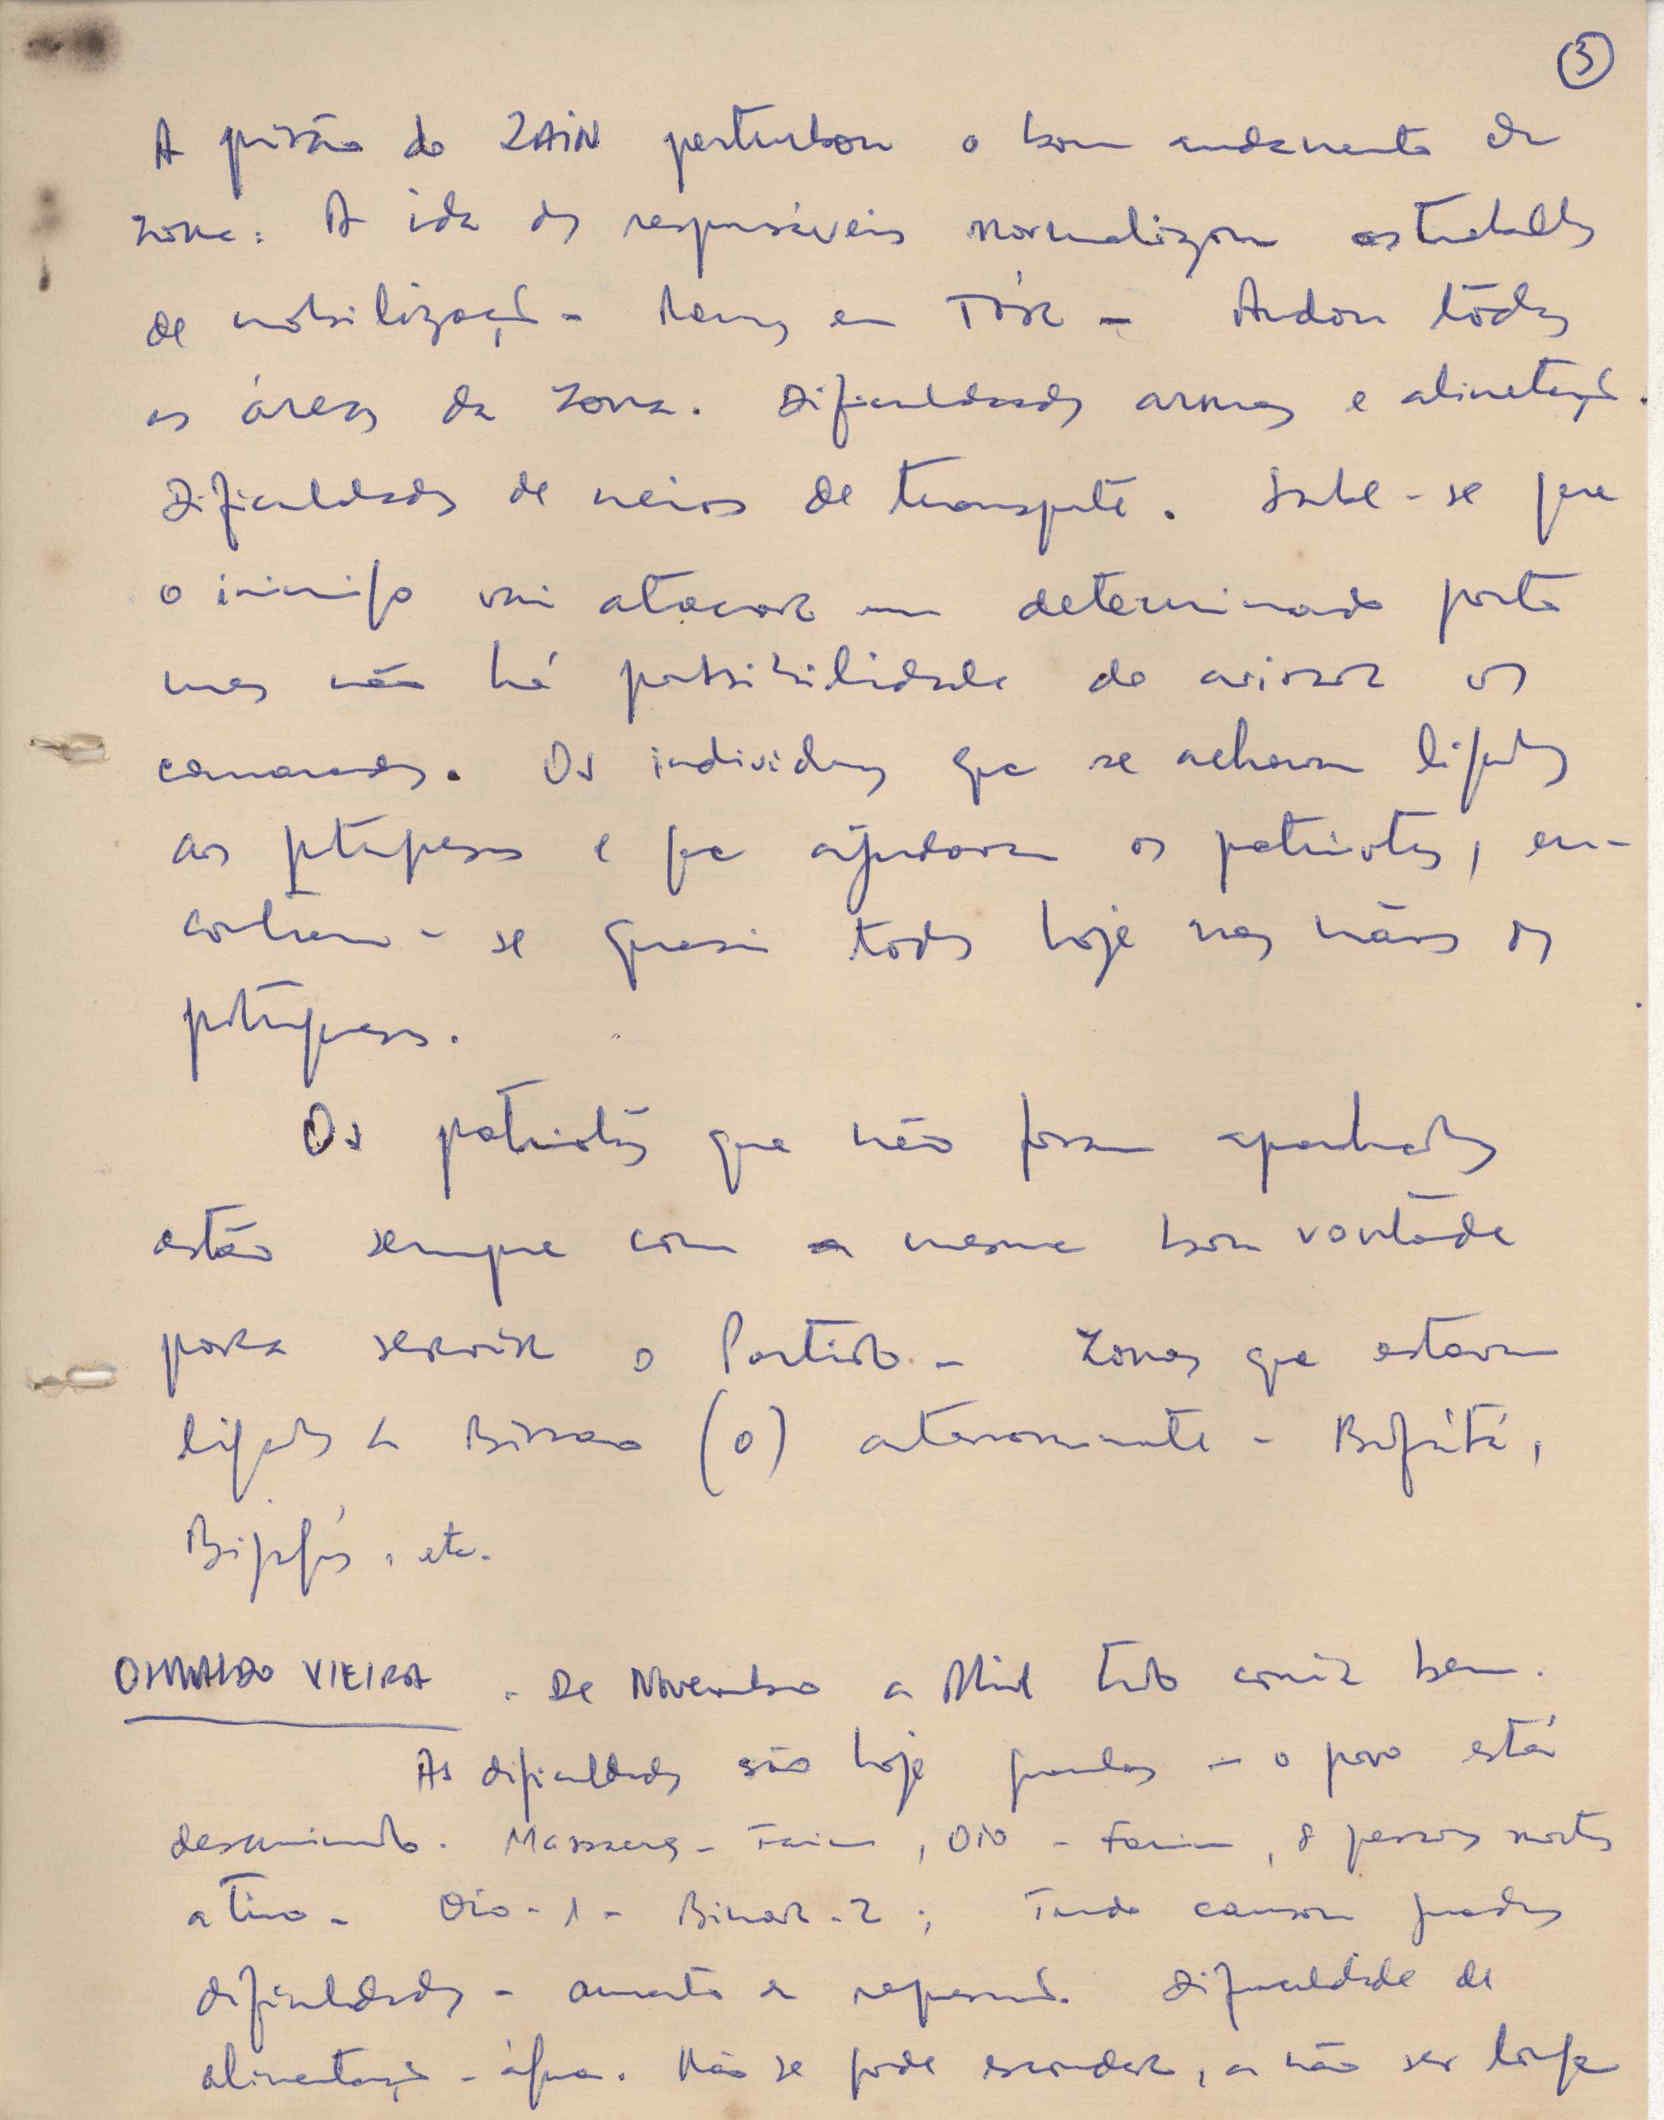 3
A prisão do ZAIN perturbou o bom andamento da
zona. A ida dos responsáveis normalizou os trabalhos
de mobilização - Armas em Tôr - Andou tôdas
as áreas da zona. Dificuldades armas e alimentação.
Dificuldades de meios de transporte. Sabe-se que
o inimigo vai atacar um determinado ponto
mas não há possibilidade de avisar os
camaradas. Os individuos que se achavam ligados
aos portugueses e que ajudavam os patriotas, en-
contram-se quasi todos hoje nas mãos dos
portugueses.
Os patriotas que não foram apanhados
estão sempre com a mesma boa vontade
para servir o Partido. - Zonas que estavam
ligadas a Bissau (0) anteriormente - Bofátá,
Bijagós, etc.
OSVALDO VIEIRA - De Novembro a Abril tudo corria bem.
As dificuldades são hoje grandes - o povo está
desanimado. Massacres - Farim, Oio - Farim, 8 pessoas mortas
a tiro - Oio - 1 - Binar - 2; Tudo causou grandes
dificuldades - aumento da repressão. Dificuldade de
alimentação - água. Não se pode esconder, a não ser longe